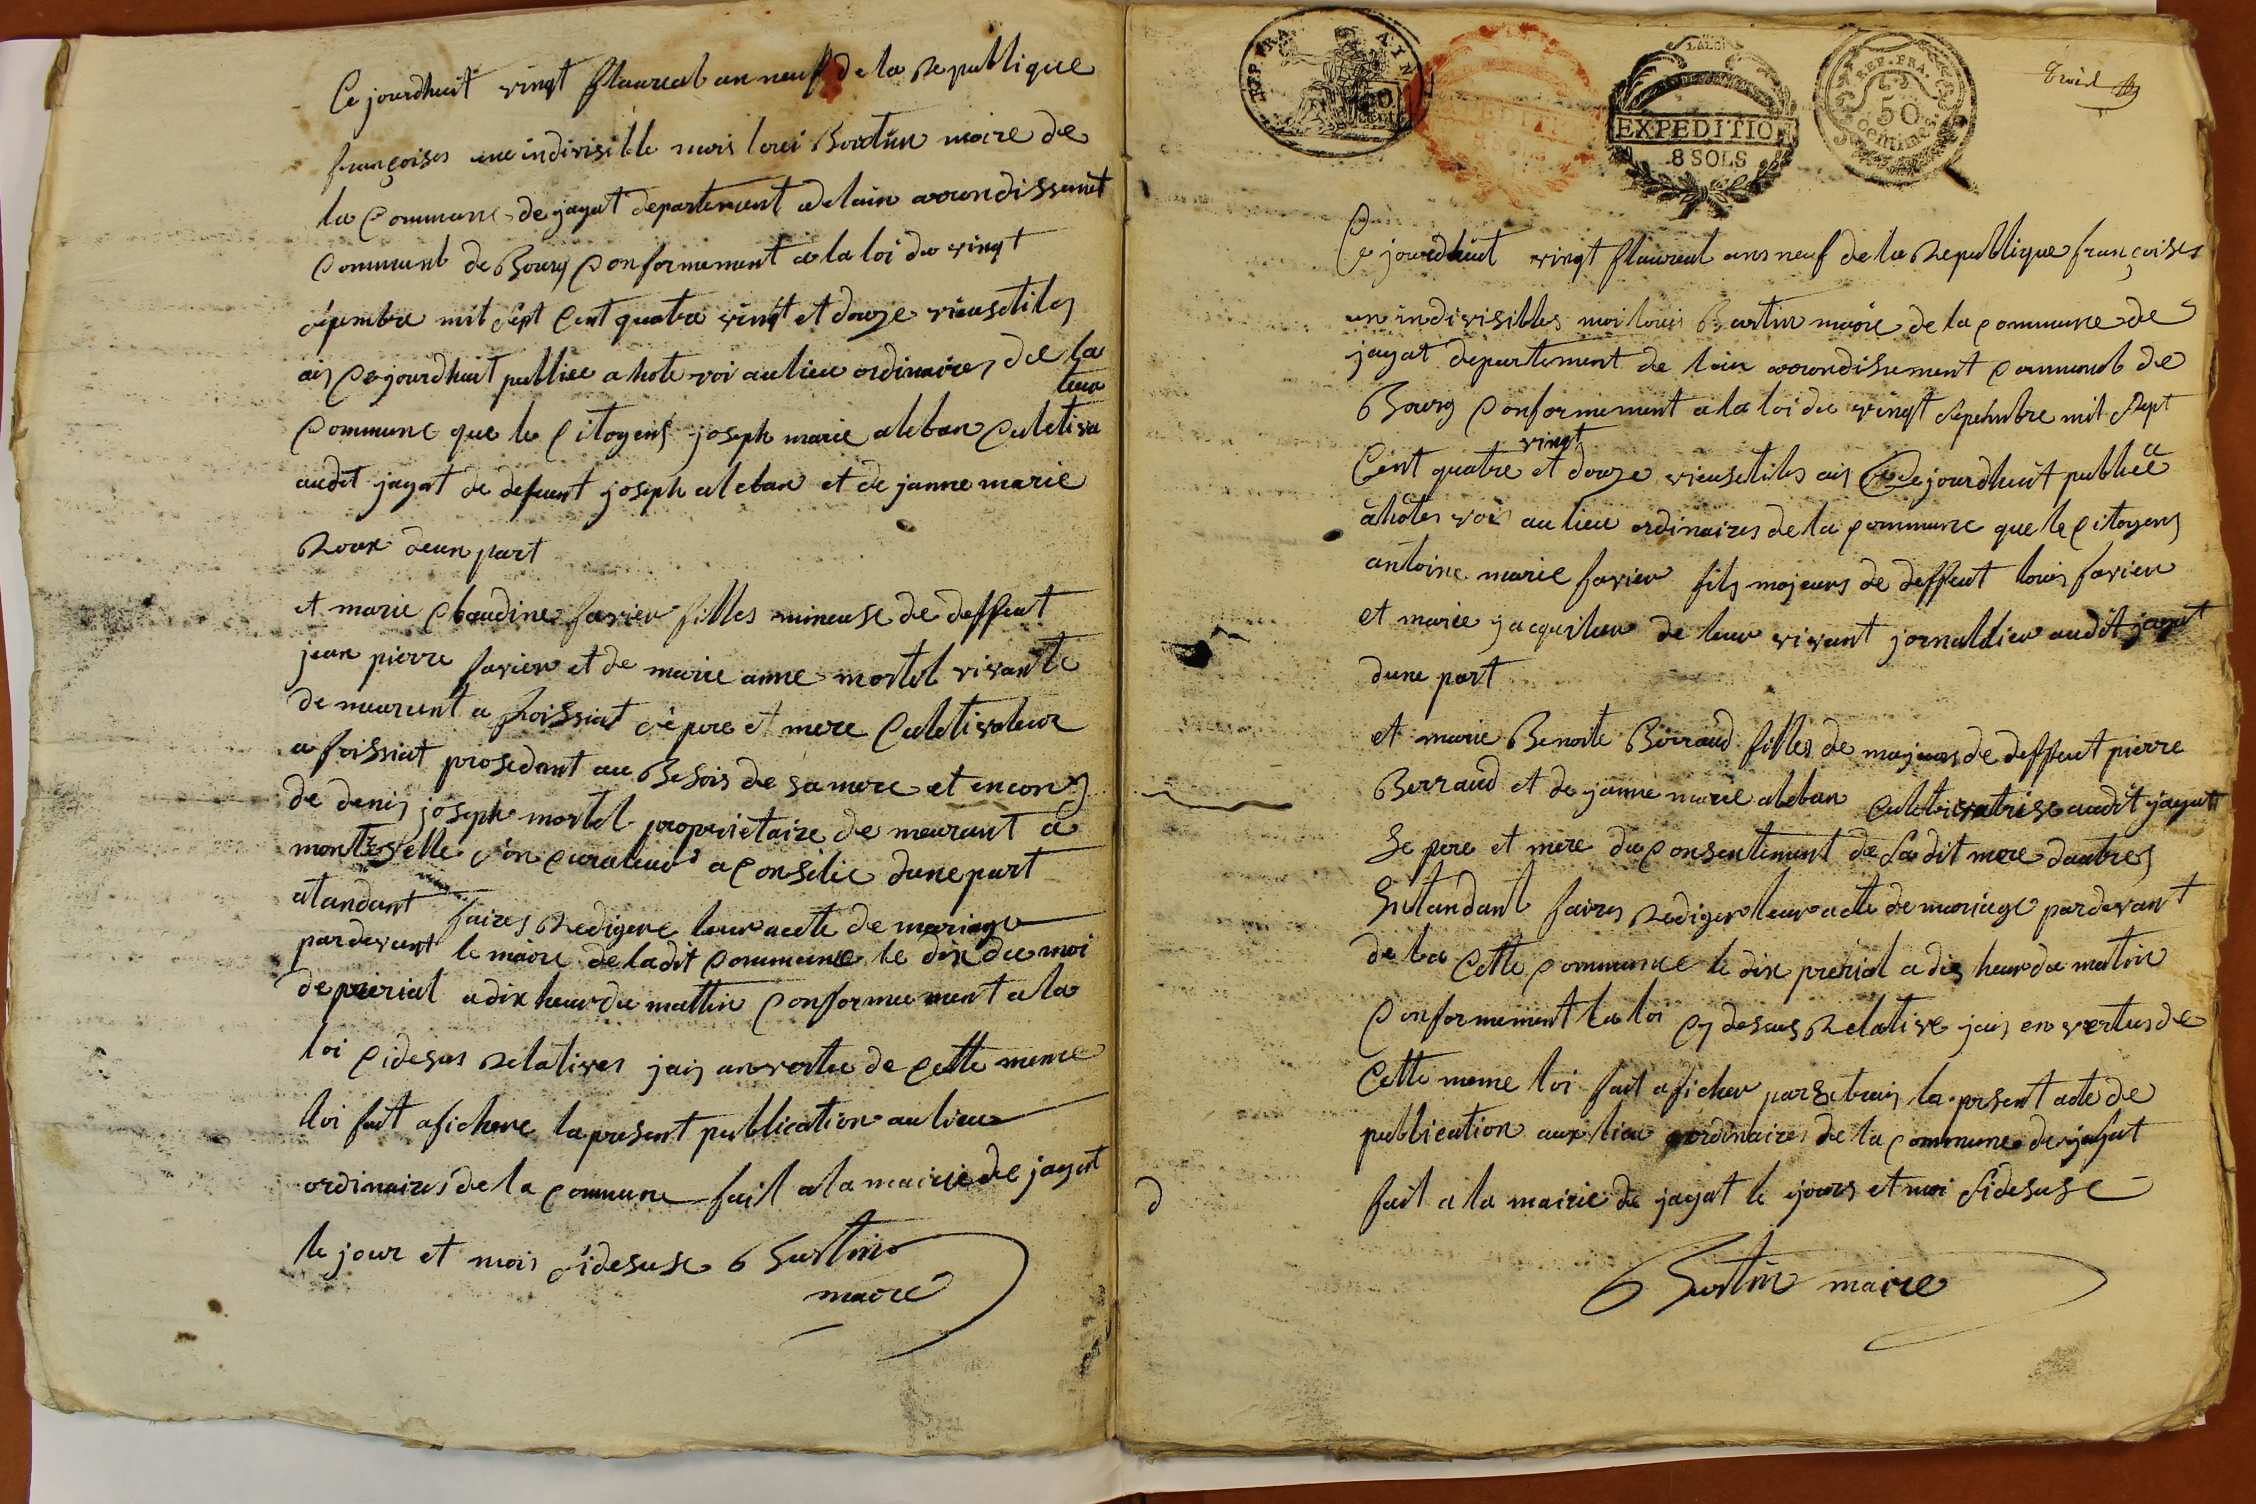 Ce jourdhuit vingt flaureal an neuf de la Republique
françoises une indivisible mois loui Bertin maire de
la Commune de jayat departement de lain arrondissemt
Communl de Bourg Conformement a la loi du vingt
sepembre mil sept Cent quatre vingt et douze vieustiles
ais Cejourdhuit publiee a hote voi au lieu ordinaires de la
Commune que le Citoyens joseph marie aleban Culetiva
teur
audit jayat de defeunt joseph aleban et de janne marie
Roux deun part
et marie Claudine favier filles mineuse de deffeut
jean pierre favier et de marie anne mortel vivante
de meurent a foissiat se pere et mere Culetivaleur
a foissiat prosedant au Besois de sa mere et encor
de denis joseph mortel proprietaire de meurant a
son curateur a Consilie dune part
atandant faires Redigere leur acte de mariage
pardevent le maire de ladit Commune le dix du moi
de prerial a dix heur du mattin Conformement a la
loi Cidesus Relatives jais anvertu de Cette meme
loi fait afichere la present publication au lieu
ordinaires de la Commune fait a la mairie de jayat
le jour et mois sidesuse Bertin
maire
REP FRA
REP. FRA.
50
centimes
LA LOI
EXPEDITION
8 SOLS
Ce jourdhuit vingt flaureal ans neuf de la Republique françoises
un indivisibles moi louis Bertin maire de la Commune de
jayat departement de lain arrondisement Communal de
Bourg Conformement a la loi du vingt sepembre mil sept
vingt
Cent quatre et douze vieustiles ais Cejourdhuit publiee
a hotes voi au lieu ordinaires de la Commune que le Citoyens
antoine marie favier fils majeurs de deffeut louis favier
et marie jacquileur de leur vivant jornaldier audit jayat
dune part
et marie Benoite Berraud filles de majeurs de deffeut pierre
Berraud et de janne marie aleban Culetivatrise audit jayat
se pere et mere du Consentement de sadit mere dautres
Entandant faires Rediger leur acte de mariage pardevant
de la Cette Commune le dix prerial a dis heur du matin
Conformement la loi Cy desus Relative jais en vertus de
Cette meme loi fait aficher par la prsent acte de
publication aux lieu ordinaires de la Commune de jayat
fait a la mairie de jayat le jours et moi sidesuse
Bertin maire